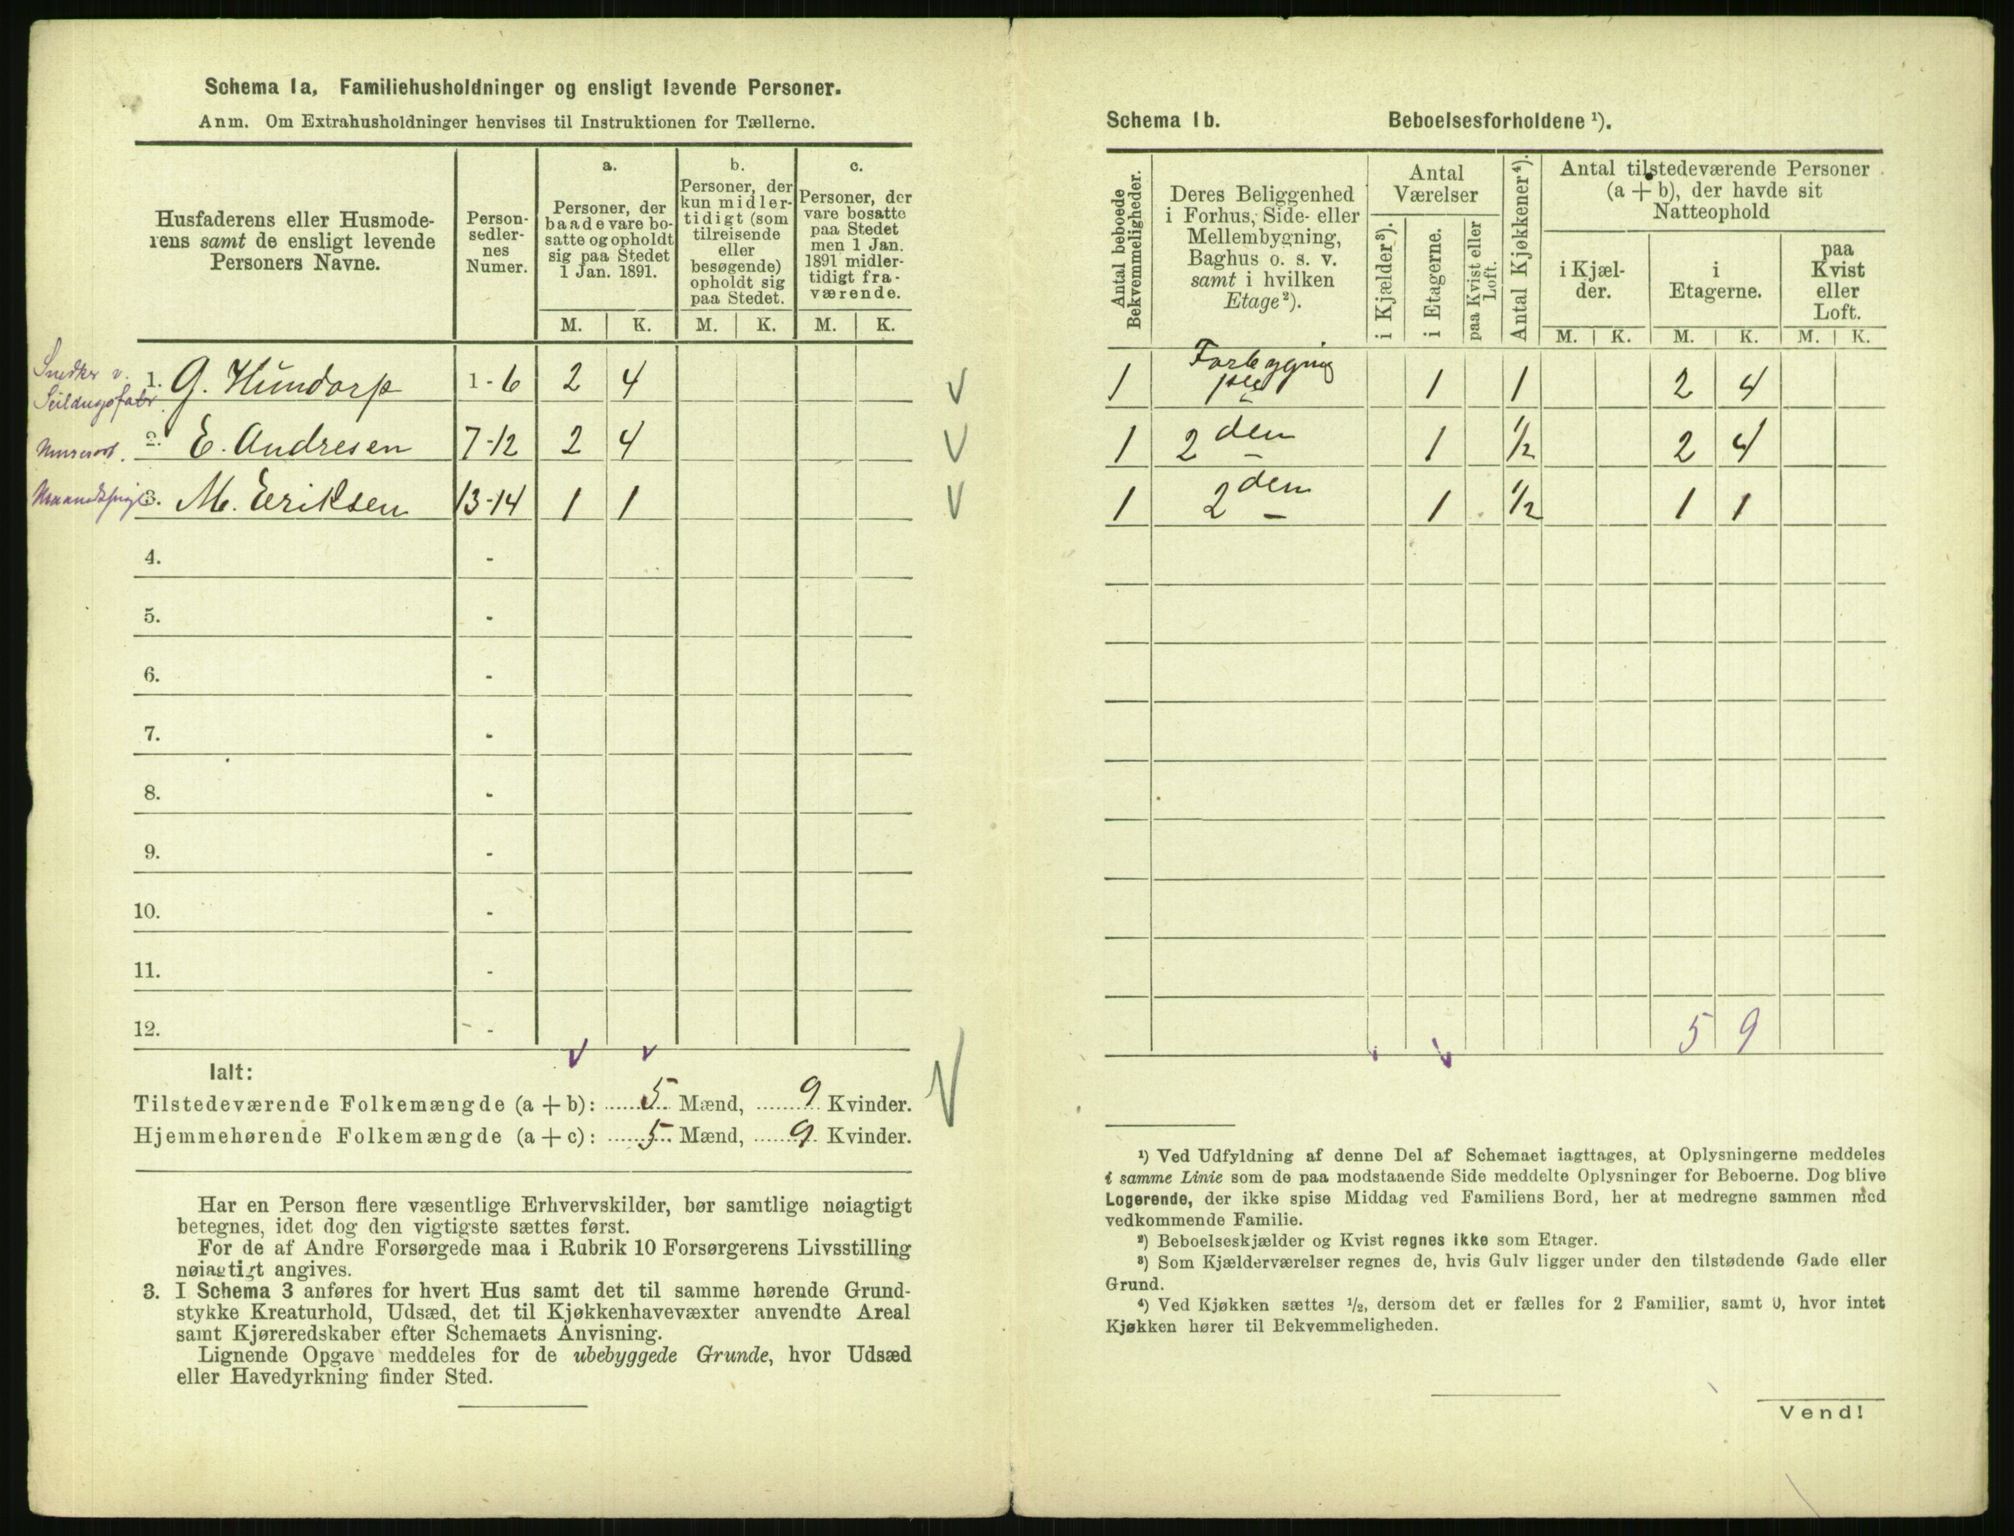 Schema 1a, Familiehusholdninger og ensligt levende Personer.
Anm. Om Extrahusholdninger henvises til Instruktionen for Tællerne.
Husfaderens eller Husmode-
rens samt de ensligt levende
Personers Navne.
Person-
sedler-
nes
Numer.
a.
Personer, der
baade vare bo-
satte og opholdt
sig paa Stedet
1 Jan. 1891.
b.
Personer, der
kun midler-
tidigt (som
tilreisende
eller
besøgende)
opholdt sig
paa Stedet.
c.
Personer, der
vare bosatte
paa Stedet
men 1 Jan.
1891 midler-
tidigt fra-
værende.
M. K. M. K. M. K.
Snedker v.
1. G. Hundorp 1-6 2 4
2. E. Andresen 7-12 2 4
3. M. Eriksen 13-14 1 1
4. -
5. -
6. -
7. -
8. -
9. -
10. -
11. -
12. -
Ialt:
Tilstedeværende Folkemængde (a + b): 5 Mænd, 9 Kvinder.
Hjemmehørende Folkemængde (a + c): 5 Mænd, 9 Kvinder.
Har en Person flere væsentlige Erhvervskilder, bør samtlige nøiagtigt
betegnes, idet dog den vigtigste sættes først.
For de af Andre Forsørgede maa i Rubrik 10 Forsørgerens Livsstilling
nøiagtigt angives.
3. I Schema 3 anføres for hvert Hus samt det til samme hørende Grund-
stykke Kreaturhold, Udsæd, det til Kjøkkenhavevæxter anvendte Areal
samt Kjøreredskaber efter Schemaets Anvisning.
Lignende Opgave meddeles for de ubebyggede Grunde, hvor Udsæd
eller Havedyrkning finder Sted.
Schema 1b. Beboelsesforholdene ¹).
Antal beboede
Bekvemmeligheder.
Deres Beliggenhed
i Forhus, Side- eller
Mellembygning,
Baghus o. s. v.
samt i hvilken
Etage ²).
Antal
Værelser
i Kjælder ³).
i Etagerne.
paa Kvist eller
Loft.
Antal Kjøkkener ⁴).
Antal tilstedeværende Personer
(a + b), der havde sit
Natteophold
i Kjæl-
der.
i
Etagerne.
paa
Kvist
eller
Loft.
M. K. M. K. M. K.
1 Forbygning
1ste 1 1 2 4
1 2den 1 ½ 2 4
1 2den 1 ½ 1 1
5 9
¹) Ved Udfyldning af denne Del af Schemaet iagttages, at Oplysningerne meddeles
i samme Linie som de paa modstaaende Side meddelte Oplysninger for Beboerne. Dog blive
Logerende, der ikke spise Middag ved Familiens Bord, her at medregne sammen med
vedkommende Familie.
²) Beboelseskjælder og Kvist regnes ikke som Etager.
³) Som Kjælderværelser regnes de, hvis Gulv ligger under den tilstødende Gade eller
Grund.
⁴) Ved Kjøkken sættes ½, dersom det er fælles for 2 Familier, samt 0, hvor intet
Kjøkken hører til Bekvemmeligheden.
Vend!